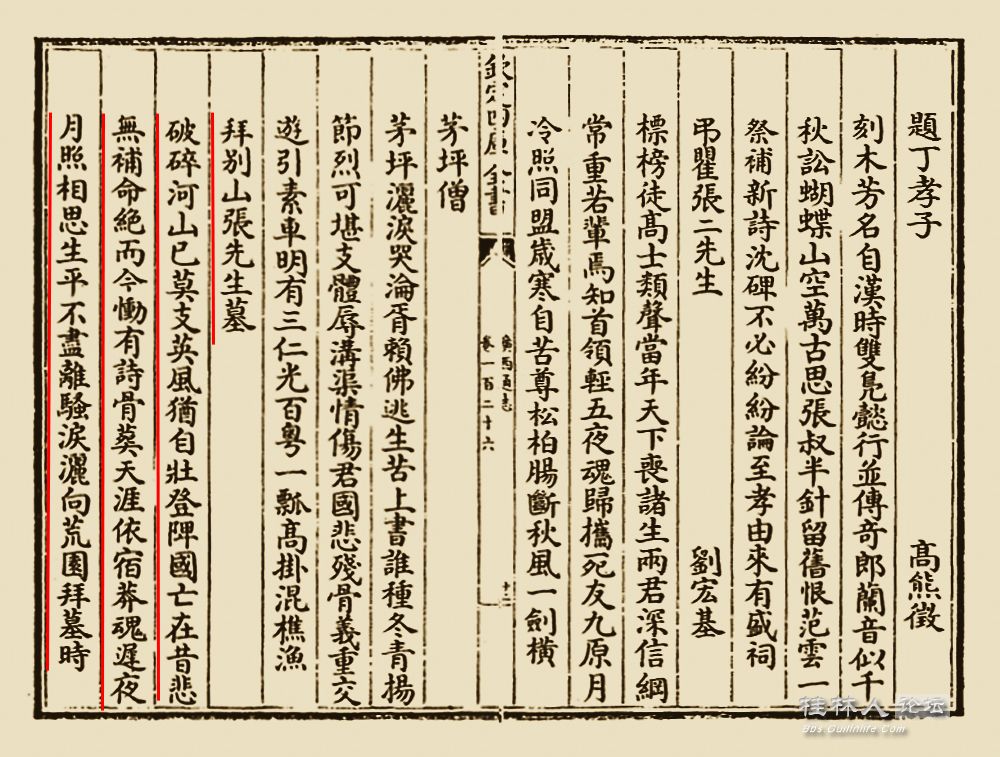 題丁孝子 高熊徵
刻木芳名自漢時雙鳧懿行並傳奇郎蘭音似千
秋訟蝴蝶山空萬古思張叔半針留舊恨范雲一
祭補新詩沈碑不必紛紛論至孝由來有盛祠
弔瞿張二先生 劉宏基
標榜徒高士類聲當年天下喪諸生兩君深信綱
常重若輩焉知首領輕五夜魂歸攜死友九原月
冷照同盟嵗寒自苦尊松柏腸斷秋風一劍橫
欽定四庫全書
廣西通志
卷一百二十六
十二
茅坪僧
茅坪灑淚哭淪胥賴佛逃生苦上書誰種冬青揚
節烈可堪支體辱溝渠情傷君國悲殘骨義重交
遊引素車明有三仁光百粵一瓢高掛混樵漁
拜别山張先生墓
破碎河山已莫支英風猶自壯登陴國亡在昔悲
無補命絶而今慟有詩骨葬天涯依宿莽魂遲夜
月照相思生平不盡離騷淚灑向荒園拜墓時
桂林人论坛
Bbs.Guilinlife.Com